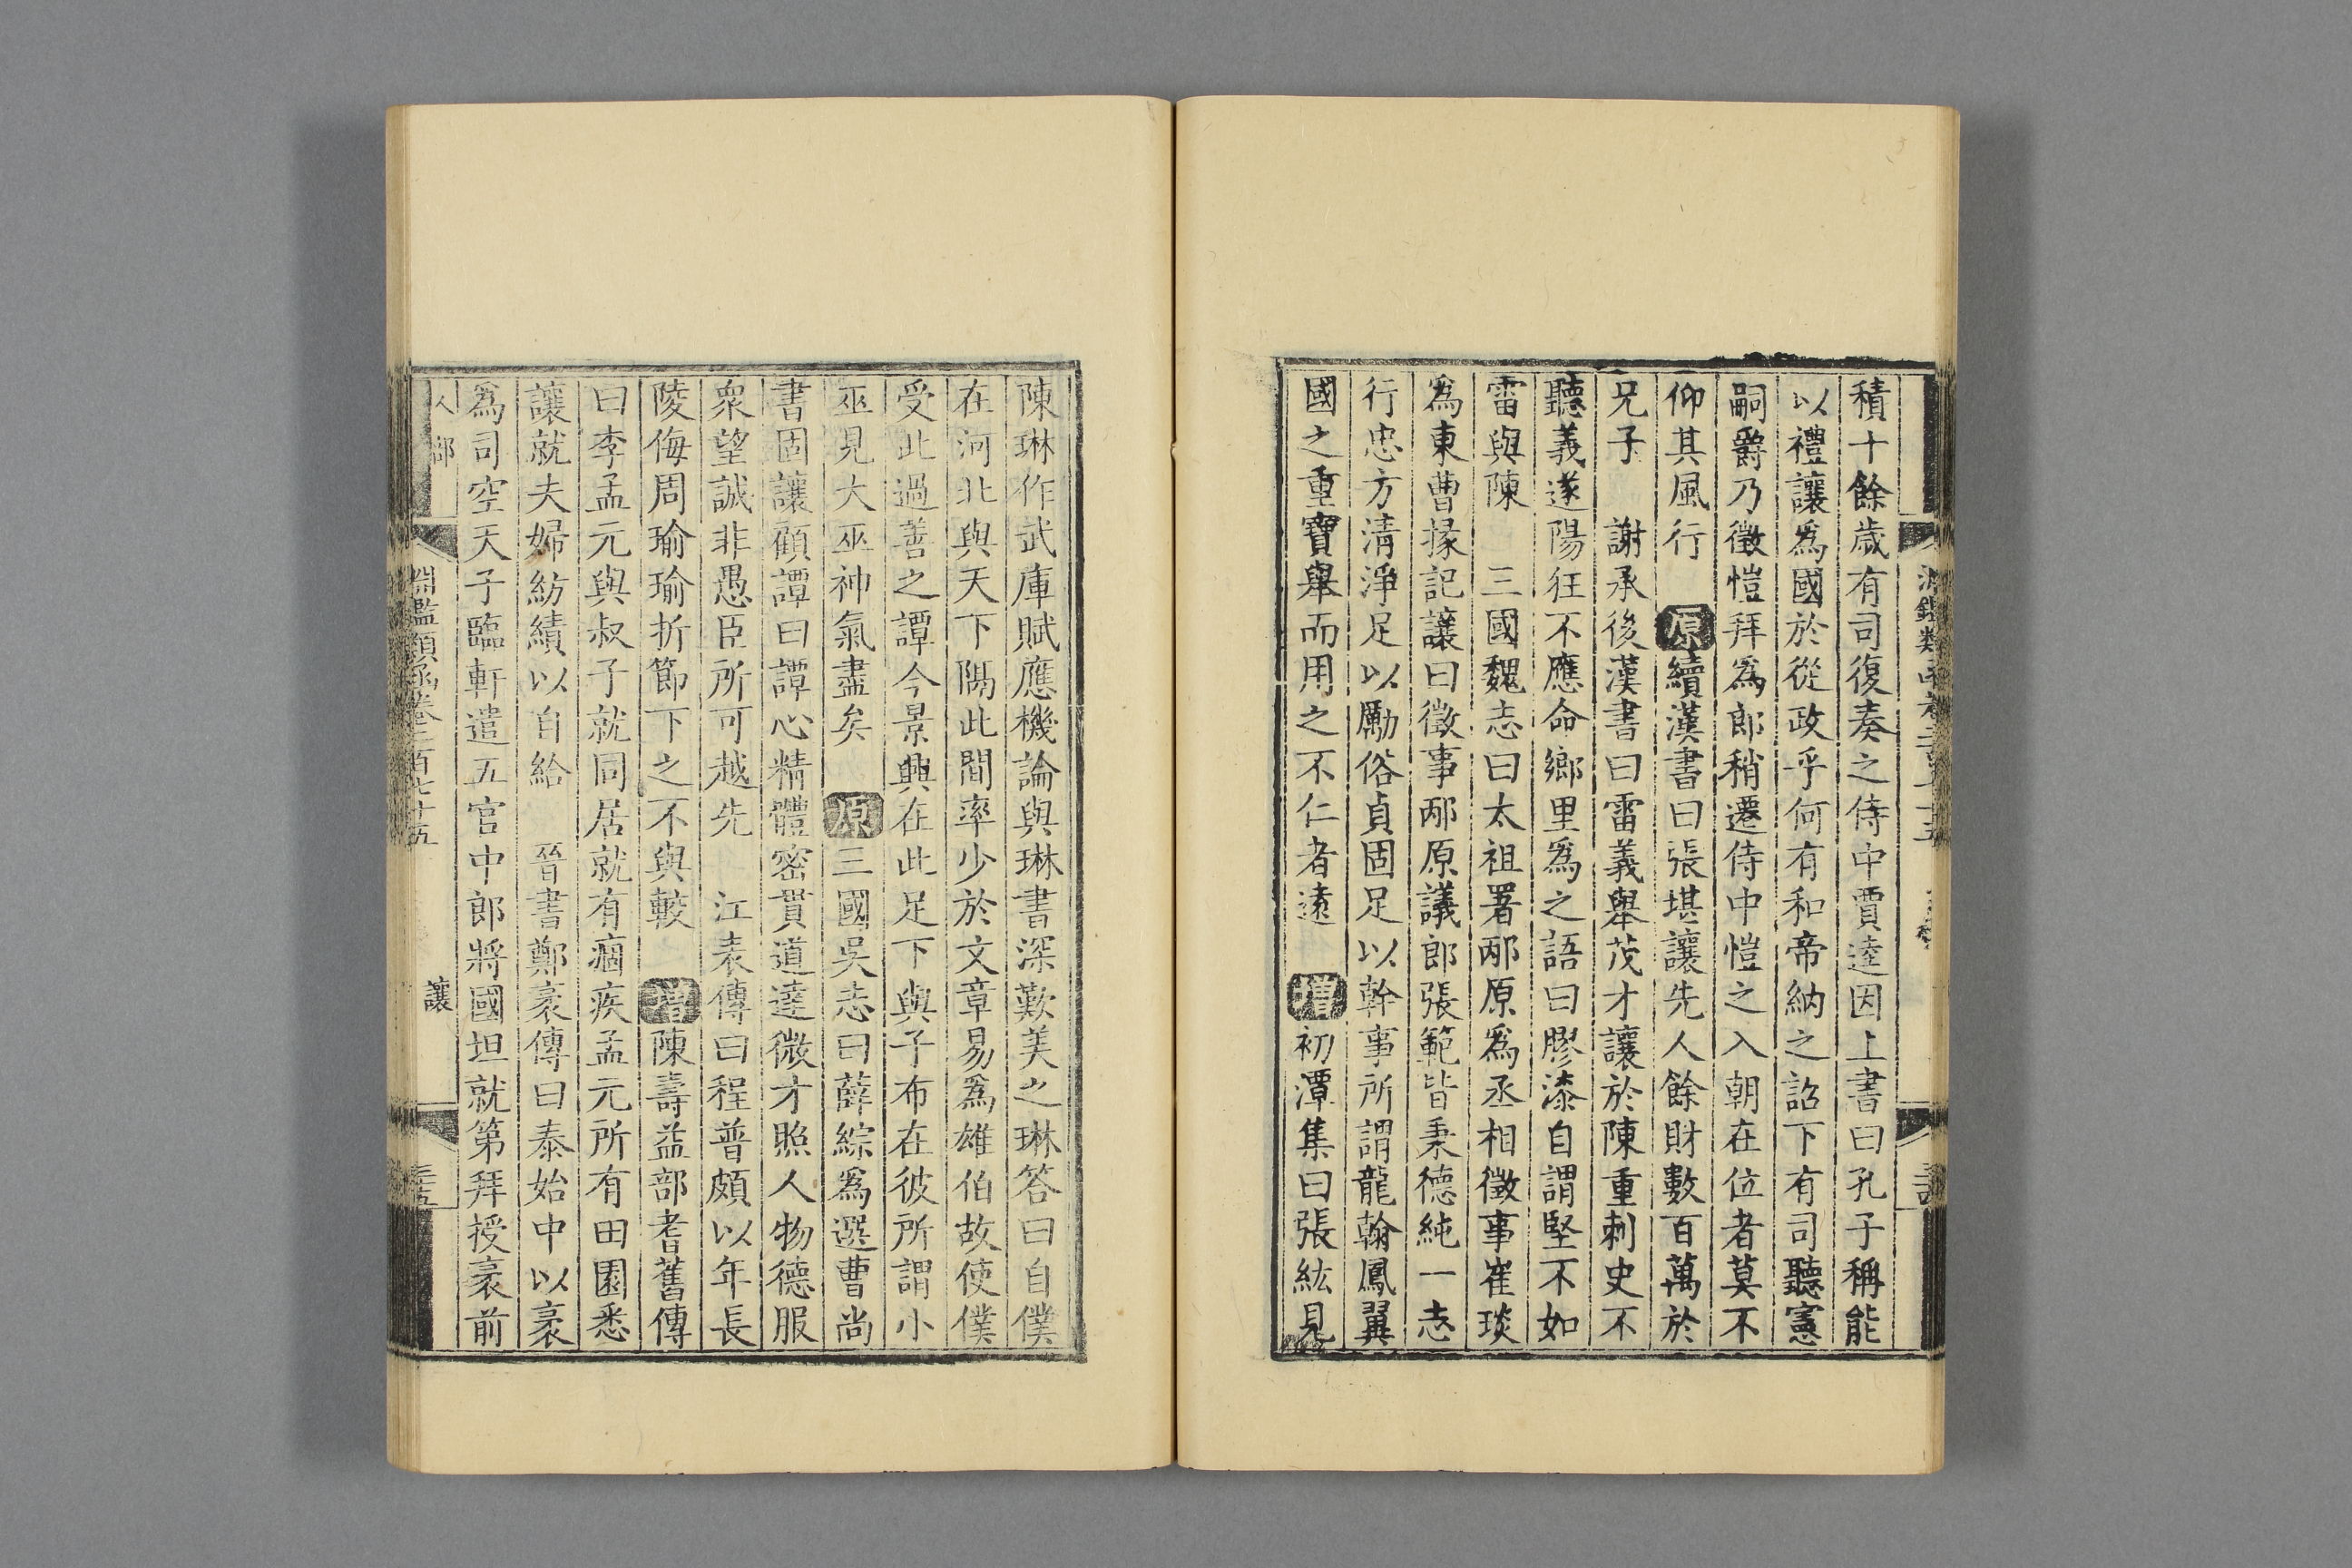 積十餘歲有司復奏之侍中賈逵因上書曰孔子稱能
以禮讓爲國於從政乎何有和帝納之詔下有司聽憲
嗣爵乃徵愷拜爲郎稍遷侍中愷之入朝在位者莫不
仰其風行 原續漢書曰張堪讓先人餘財數百萬於
兄子 謝承後漢書曰雷義舉茂才讓於陳重刺史不
聽義遂陽狂不應命鄉里爲之語曰膠漆自謂堅不如
雷與陳 三國魏志曰太祖署邴原爲丞相徵事崔琰
爲東曹掾記讓曰徵事邴原議郎張範皆秉德純一志
行忠方清淨足以勵俗貞固足以幹事所謂龍翰鳳翼
國之重寶舉而用之不仁者遠 增初潭集曰張紘見
陳琳作武庫賦應機論與琳書深歎美之琳答曰自僕
在河北與天下隔此間率少於文章易爲雄伯故使僕
受此過善之譚今景興在此足下與子布在彼所謂小
巫見大巫神氣盡矣 原三國吳志曰薛綜爲選曹尚
書固讓顧譚曰譚心精體密貫道達微才照人物德服
衆望誠非愚臣所可越先 江表傳曰程普頗以年長
陵侮周瑜瑜折節下之不與較 增陳壽益部耆舊傳
曰李孟元與叔子就同居就有痼疾孟元所有田園悉
讓就夫婦紡績以自給 晉書鄭袤傳曰泰始中以袤
爲司空天子臨軒遣五官中郎將國坦就第拜授袤前
人部 淵鑑類函卷二百七十五 讓 三十五